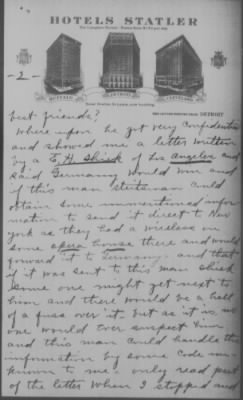 HOTELS STATLER
-2-
BUFFALO
DETROIT
CLEVELAND
DETROIT
best friends?
Where upon he got very confidential
and showed me a letter written
by a E. H. Shriek of Los Angeles and
said Germany would win and
if this man Stutsman could
obtain some unmentioned infor
mation to send it direct to New
york as they had a wireless on
some opera house there and would
forward it to Germany - and that
if it was sent to this man Shriek
some one might get next to
him and there would be a hell
of a fuss over it. but as it is no
one would ever suspect him
and this man could handle this
information by some code un-
known to me - only read part
of the letter when I stopped and